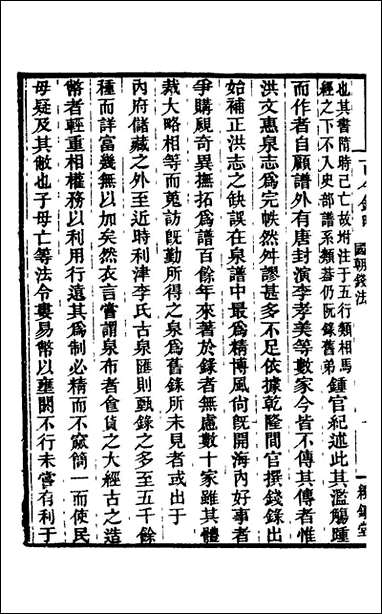 國朝錢法
也其書隋時已亡故坿注于五行類相馬
經之下不入史部譜系類葢仍阮錄舊弟
鍾官紀述此其濫觴踵
而作者自顧譜外有唐封演李孝美等數家今皆不傳其傳者惟
洪文惠泉志爲完帙然舛謬甚多不足依據乾隆間官撰錢錄出
始補正洪志之缺誤在泉譜中最爲精博風尙旣開海內好事者
爭購覛奇異撫拓爲譜百餘年來著於錄者無慮數十家雖其體
裁大略相等而蒐訪旣勤所得之泉爲舊錄所未見者或出于
內府儲藏之外至近時利津李氏古泉匯則甄錄之多至五千餘
種而詳富幾無以加矣然衣言嘗謂泉布者食貨之大經古之造
幣者輕重相權務以利用行遠其爲制必精而不窳簡一而使民
毋疑及其敝也今子母亡等法令婁易幣以壅閼不行未嘗有利于